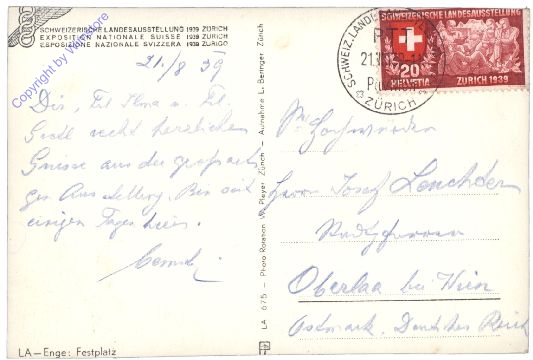 SCHWEIZERISCHE LANDESAUSSTELLUNG 1939 ZÜRICH
EXPOSITION NATIONALE SUISSE 1939 ZURICH
ESPOSIZIONE NAZIONALE SVIZZERA 1939 ZURIGO
Copyright by Wildstore
21./8 39
Dir, Frl. und Frl.
recht herzlichen
Grüsse aus der
Ausstellung. Bin seit
einigen Tagen hier.
LA—Enge: Festplatz
LA 675 - Photo Rotation W. Pleyer Zürich - Aufnahme L. Beringer Zürich
SCHWEIZ. LANDES
PTT
21.
ZÜRICH
SCHWEIZERISCHE LANDESAUSSTELLUNG
20
HELVETIA
ZÜRICH 1939
Hochwürden
Herrn Josef
Stadtpfarrer
Oberlaa bei Wien
Ostmark. Deutsches Reich